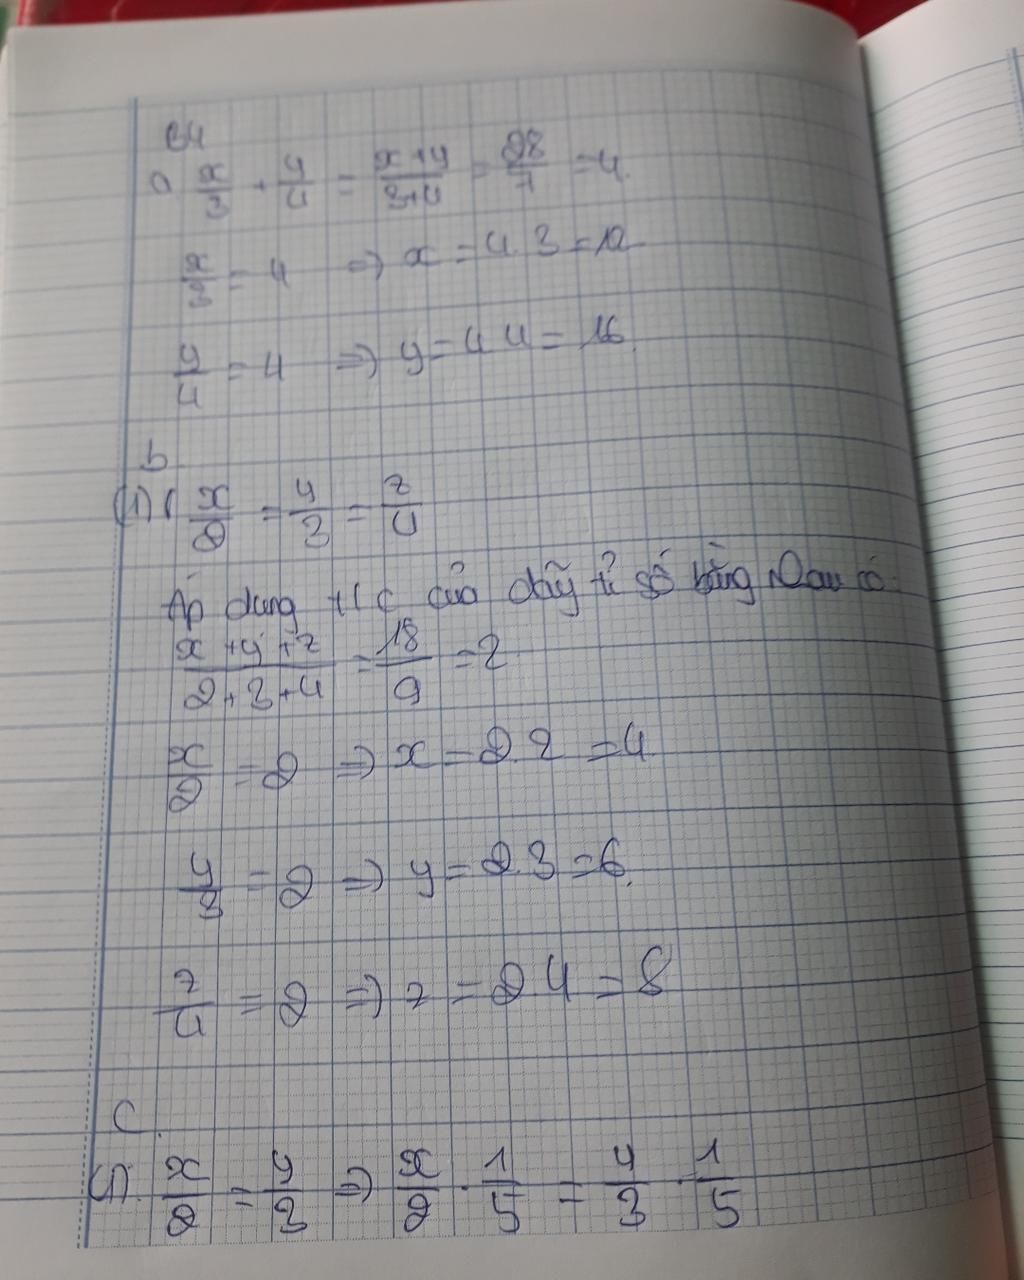 B4
a x/3 + y/4 = x+y/3+4 = 28/7 = 4.
x/3 = 4 => x = 4.3 = 12
y/4 = 4 => y = 4.4 = 16.
b
x/2 = y/3 = z/4
Áp dụng t/c của dãy tỉ số bằng nhau có:
x+y+z/2+3+4 = 18/9 = 2
x/2 = 2 => x = 2.2 = 4
y/3 = 2 => y = 2.3 = 6.
z/4 = 2 => z = 2.4 = 8
C.
x/2 = y/3 => x/2 . 1/5 = y/3 . 1/5